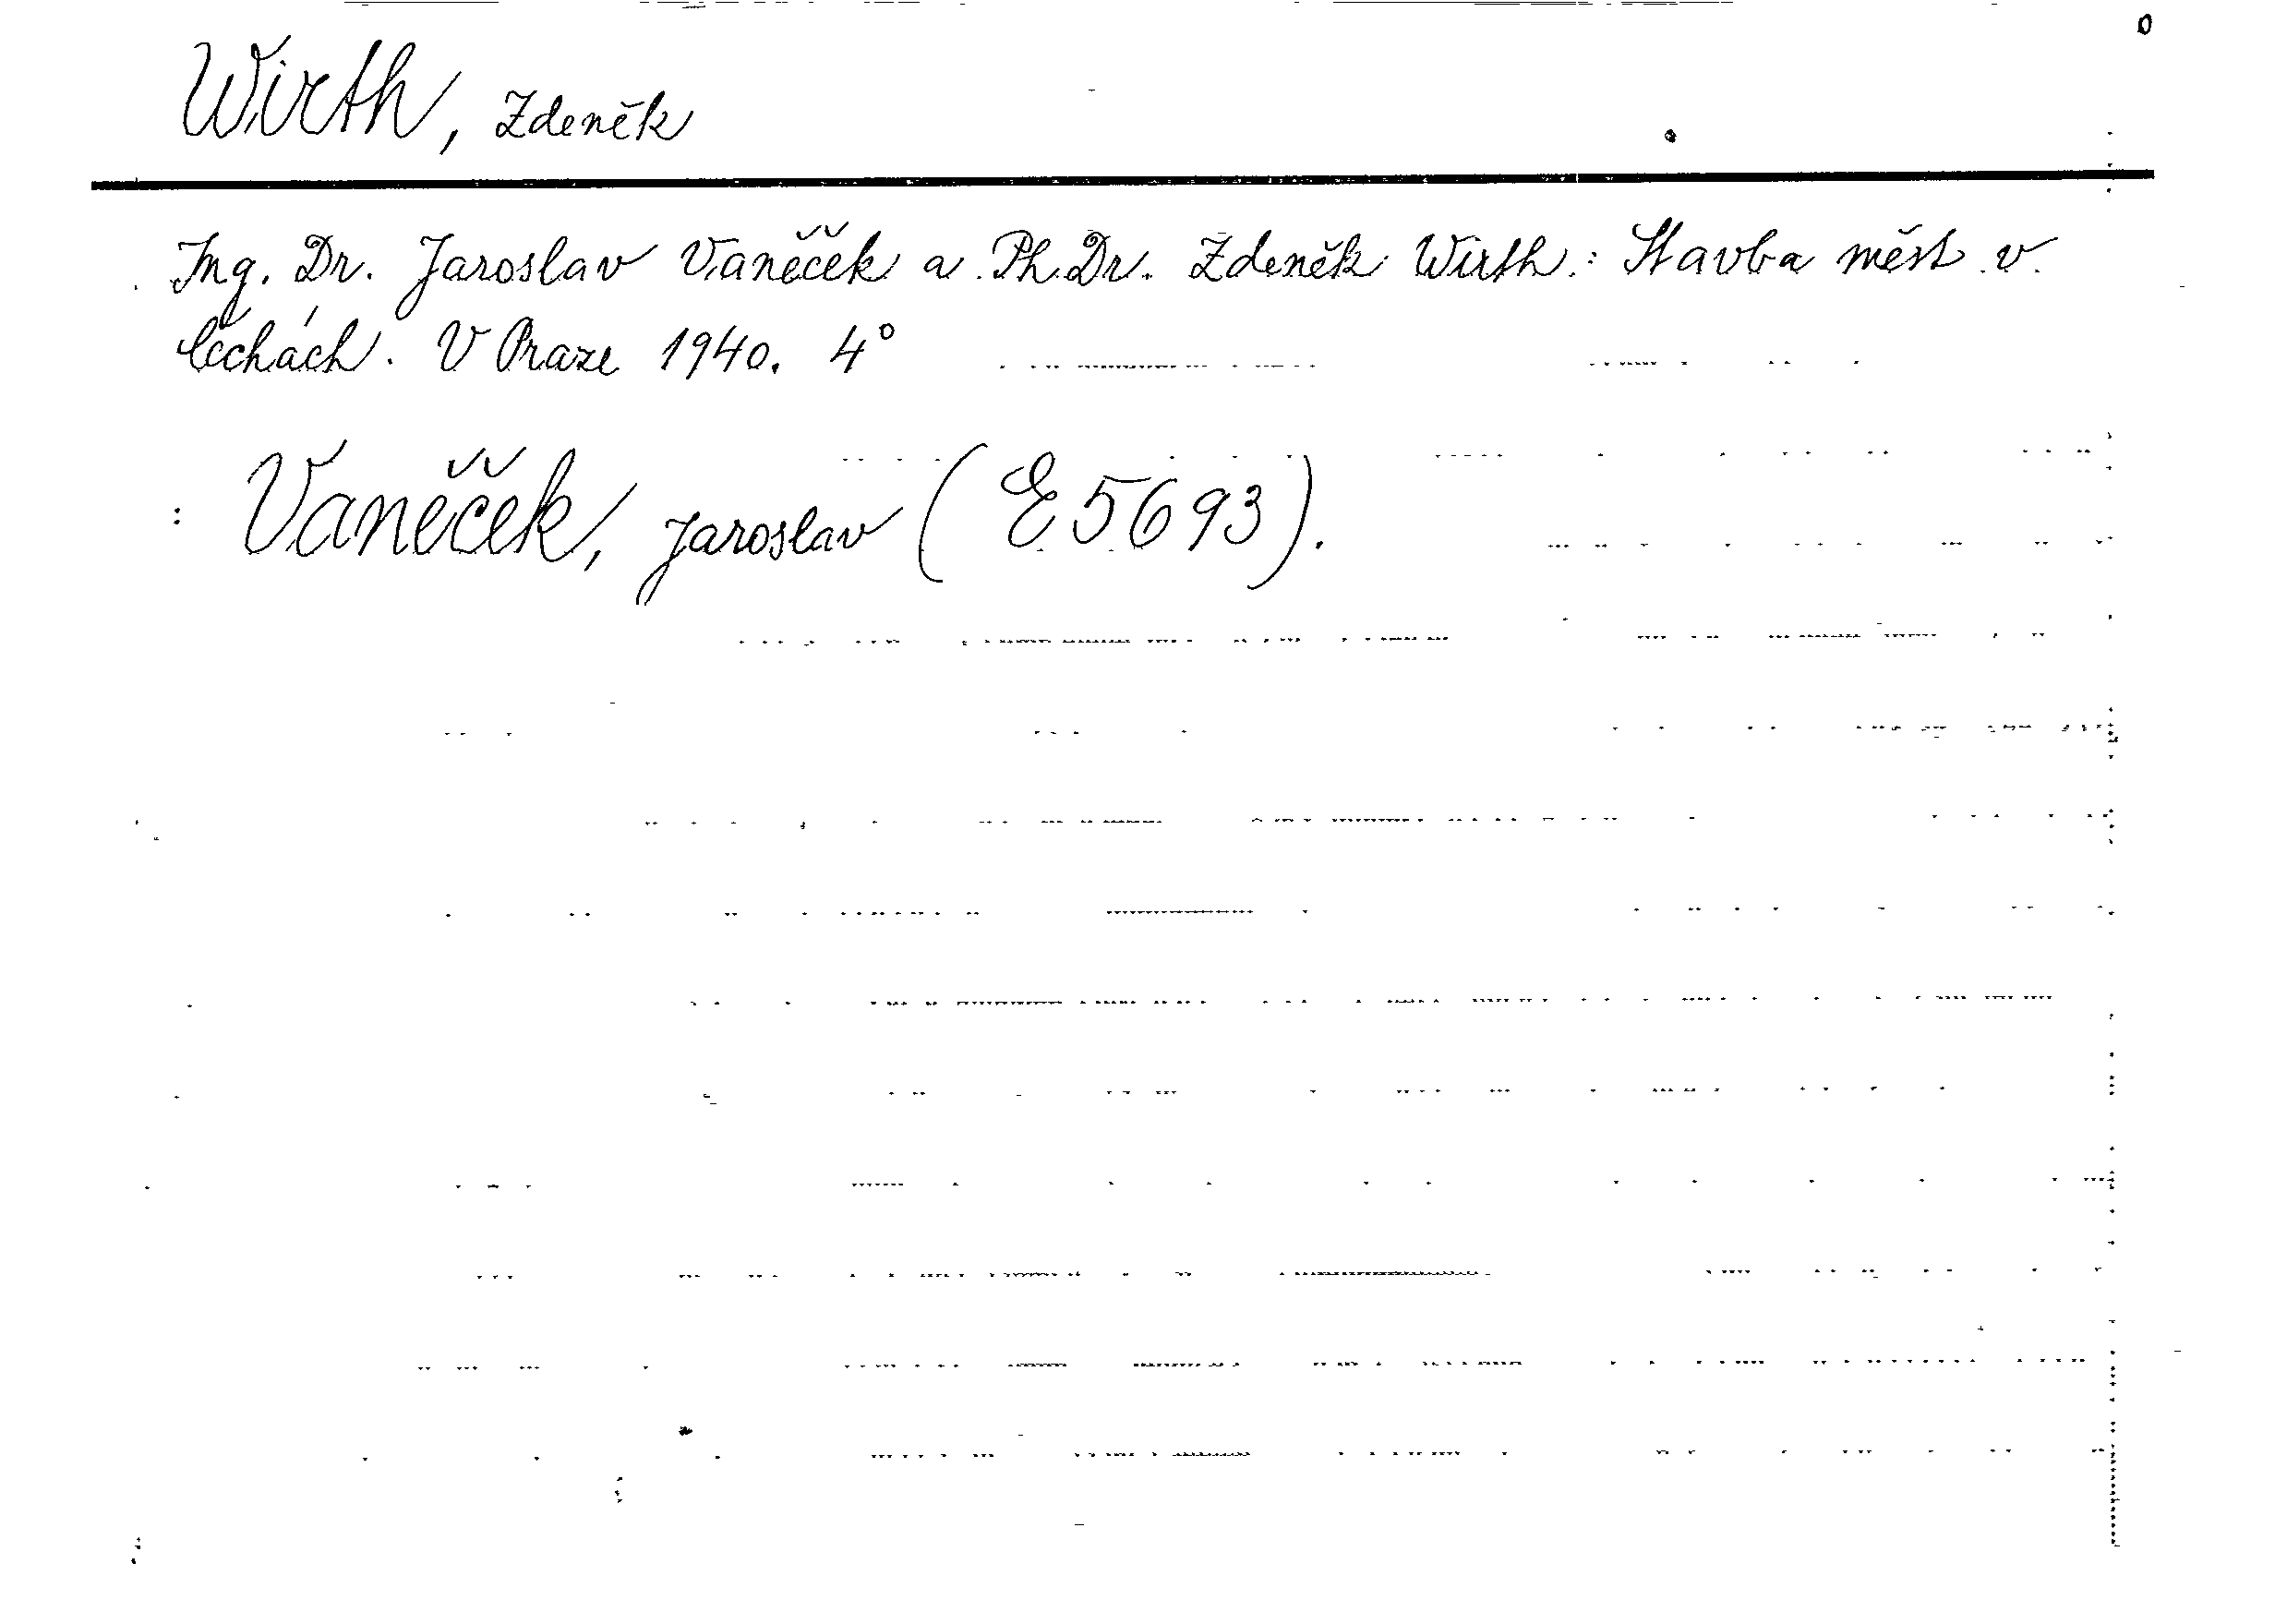 Wirth, Zdeněk
Ing. Dr. Jaroslav Vaněček a Ph.Dr. Zdeněk Wirth: Stavba měst v
Čechách. V Praze 1940. 4°
Vaněček, Jaroslav (E5693).